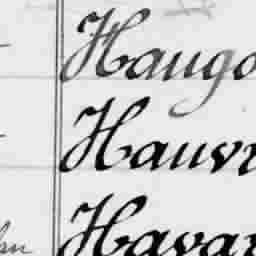 Haugo
Hauvr
Havar